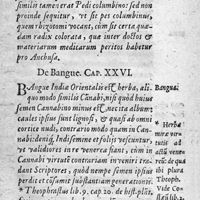 simile tamen erat Pedi columbino: sed non
proinde sequitur, vt sit pes columbinus,
quem rhizotomi vocant, cum sit certa quæ-
dam radix colorata, quæ inter doctos &
materiarum medicarum peritos habetur
pro Anchusa.
De Bangue. CAP. XXVI.
BAngue Indiæ Orientalis est herba, ali-
quo modo similis Cānabi, nisi quòd huius
semen Cannabino minus est, nec ita album;
caules ipsius sunt lignosi, & quasi ab omni
cortice nudi, contrario modo quam in Can-
nabi:
& validiores ita venerea fiant, cum in
Cannabi virtute contrariam inveniri tra-
dant Scriptores, quòd nempe semen sperma
perdit et
* Theophrastus lib. 9. cap 20. de hist. plāt.
Bangue.
* Herba
mira ver-
ad
actū vene-
reū: de qua
ibi plura
Theoph.